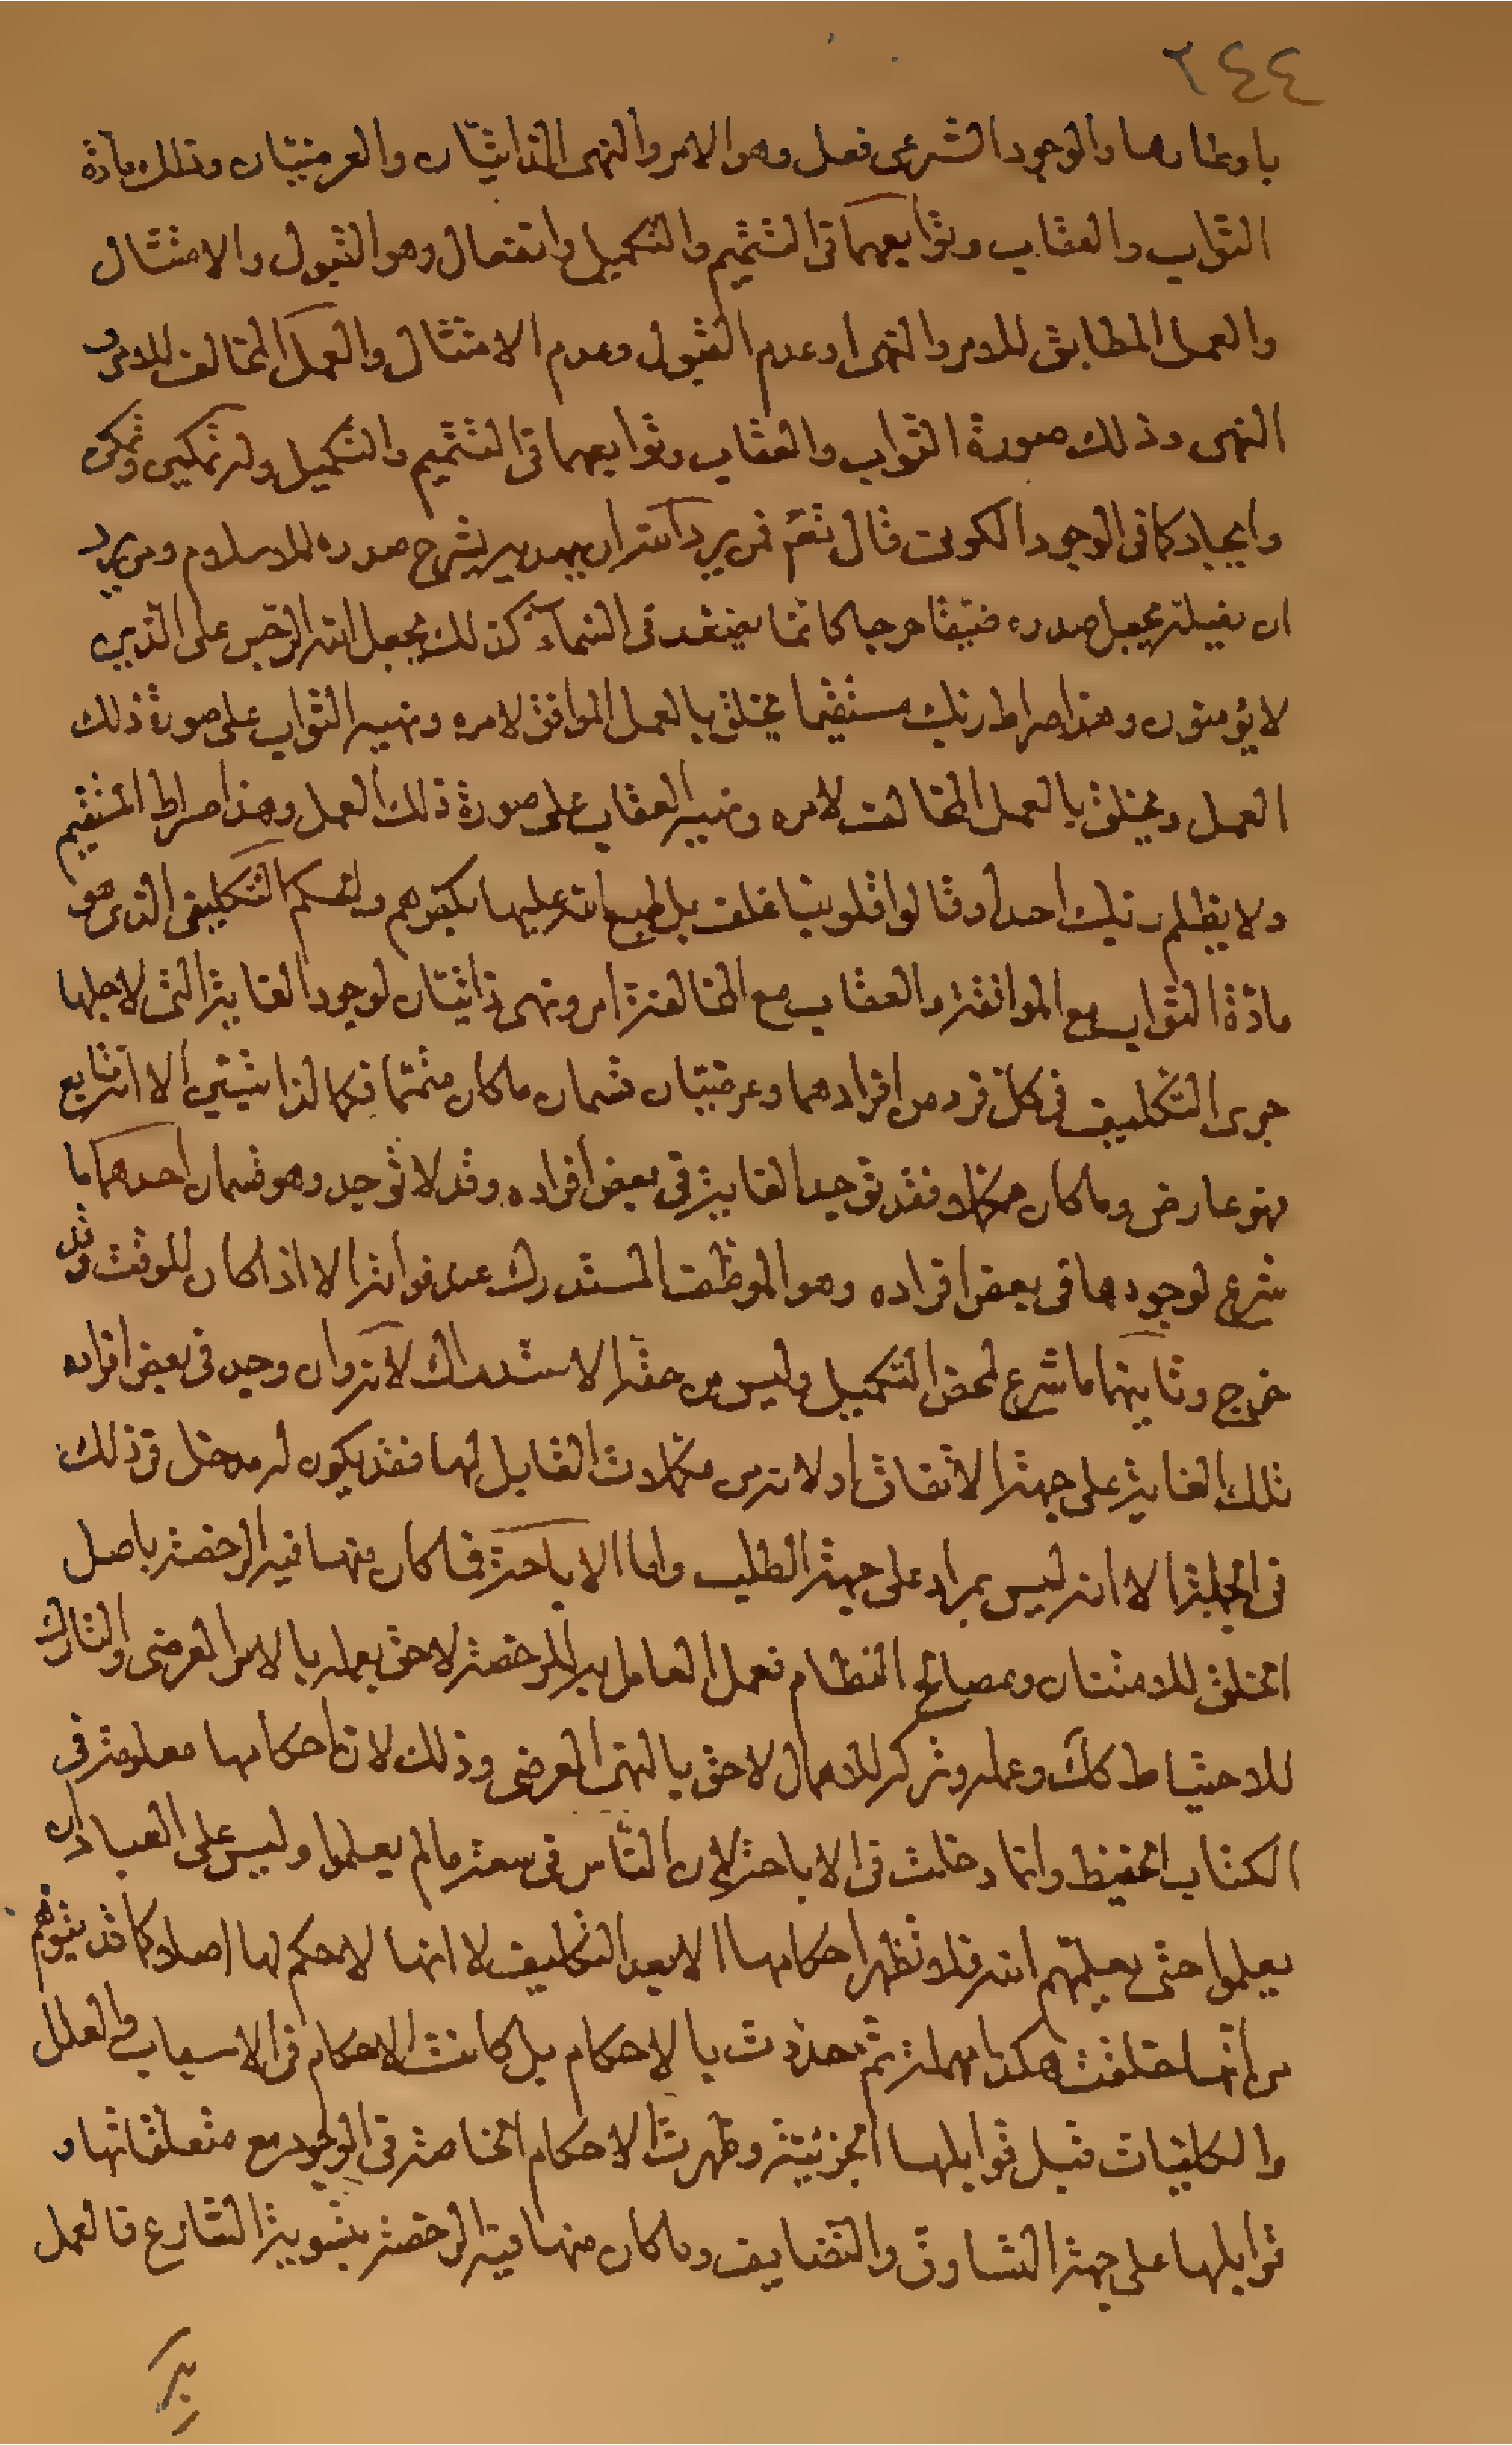 ٢٤٤
باوطارها والوجود الشرعى فعل وهو الامر والنهى الذاتيّان والعرضيّان وتلك مادّة
الثواب والعقاب وتوابعهما فى التتميم والتكميل وانفعال وهو القبول والامتثال
والعمل المطابق للامر والنهى او عدم القبول وعدم الامتثال والعمل المخالف للامر و
النهى وذلك صورة الثواب والعقاب وتوابعهما فى التتميم والتكميل وله تمكين وتمكن
وايجاد كما فى الوجود الكونى قال تعم فمن يرد الله ان يهديه يشرح صدره للاسلام ومن يرد
ان يضلّه يجعل صدره ضيّقا حرجا كانّما يصّعّد فى السّمآء كذلك يجعل الله الرّجس على الّذين
لا يؤمنون وهذا صراط ربّك مستقيما يخلق بالعمل الموافق لامره ونهيه الثواب على صورة ذلك
العمل ويخلق بالعمل المخالف لامره ونهيه العقاب على صورة ذلك العمل وهذا صراط المستقيم
ولا يظلم ربّك احدا وقالوا قلوبنا غلف بل طبع الله عليها بكفرهم والحكم التكليفى الذى هو
مادّة الثواب مع الموافقة والعقاب مع المخالفة امر ونهى ذاتيّان لوجود الغاية التى لاجلها
جرى التكليف فى كل فرد من افرادهما وعرضيّان قسمان ما كان متمّما فكالذاتيّين الا انّه تابع
فهو عارض وما كان مكمّلا فقد توجد الغاية فى بعض افراده وقد لا توجد وهو قسمان احدهما ما
شرع لوجودها فى بعض افراده وهو الموظف المستدرك عند فواته الا اذا كان للوقت وقد
خرج وثانيهما ما شرع لمحض التكميل وليس من حقّه الاستدراك لانه وان وجد فى بعض افراده
تلك الغاية على جهة الاتفاق او لانه من مكملات القابل لها فقد يكون له مدخل فى ذلك
فى الجملة الا انه ليس بمراد على جهة الطلب واما الاباحة فما كان منها فيه الرخصة باصل
الخلق للامتنان ومصالح النظام فعمل العامل به للرخصة لاحق بعمله بالامر العرضى والتارك
للاحتياط كك وعمله وتركه للاهمال لاحق بالنهى العرضى وذلك لان احكامها معلومة فى
الكتاب الحفيظ وانما دخلت فى الاباحة لان الناس فى سعة ما لم يعلموا وليس على العباد ان
يعلموا حتى يعلّمهم الله فلا تظهر احكامها الا بعد التكليف لا انها لا حكم لها اصلا كما قد يتوهّم
من انها خلقت هكذا مهملة ثم حدّدت بالاحكام بل كانت الاحكام فى الاسباب والعلل
والكليات قبل قوابلها الجزئيّة وظهرت الاحكام الخاصة فى الوجود مع متعلقاتها و
قوابلها على جهة التساوق والتضايف وما كان منها فيه الرخصة بتسوية الشارع فالعمل
به